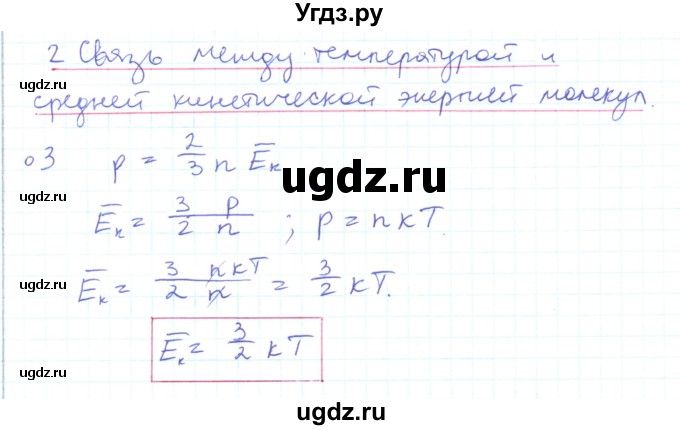 Угдз.ру
2 Связь между температурой и
ugdz.ru
средней кинетической энергией молекул.
ugdz.ru
03 p = 2/3 n E̅к
ugdz.ru
ugdz.ru
E̅к = 3/2 p/n ; p = nkT.
ugdz.ru
E̅к = 3/2 nkT/n = 3/2 kT.
ugdz.ru
E̅к = 3/2 kT
ugdz.ru
ugdz.ru